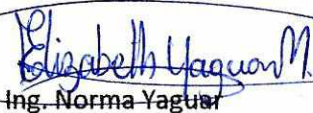 Elizabeth Yaguar M.
Ing. Norma Yaguar